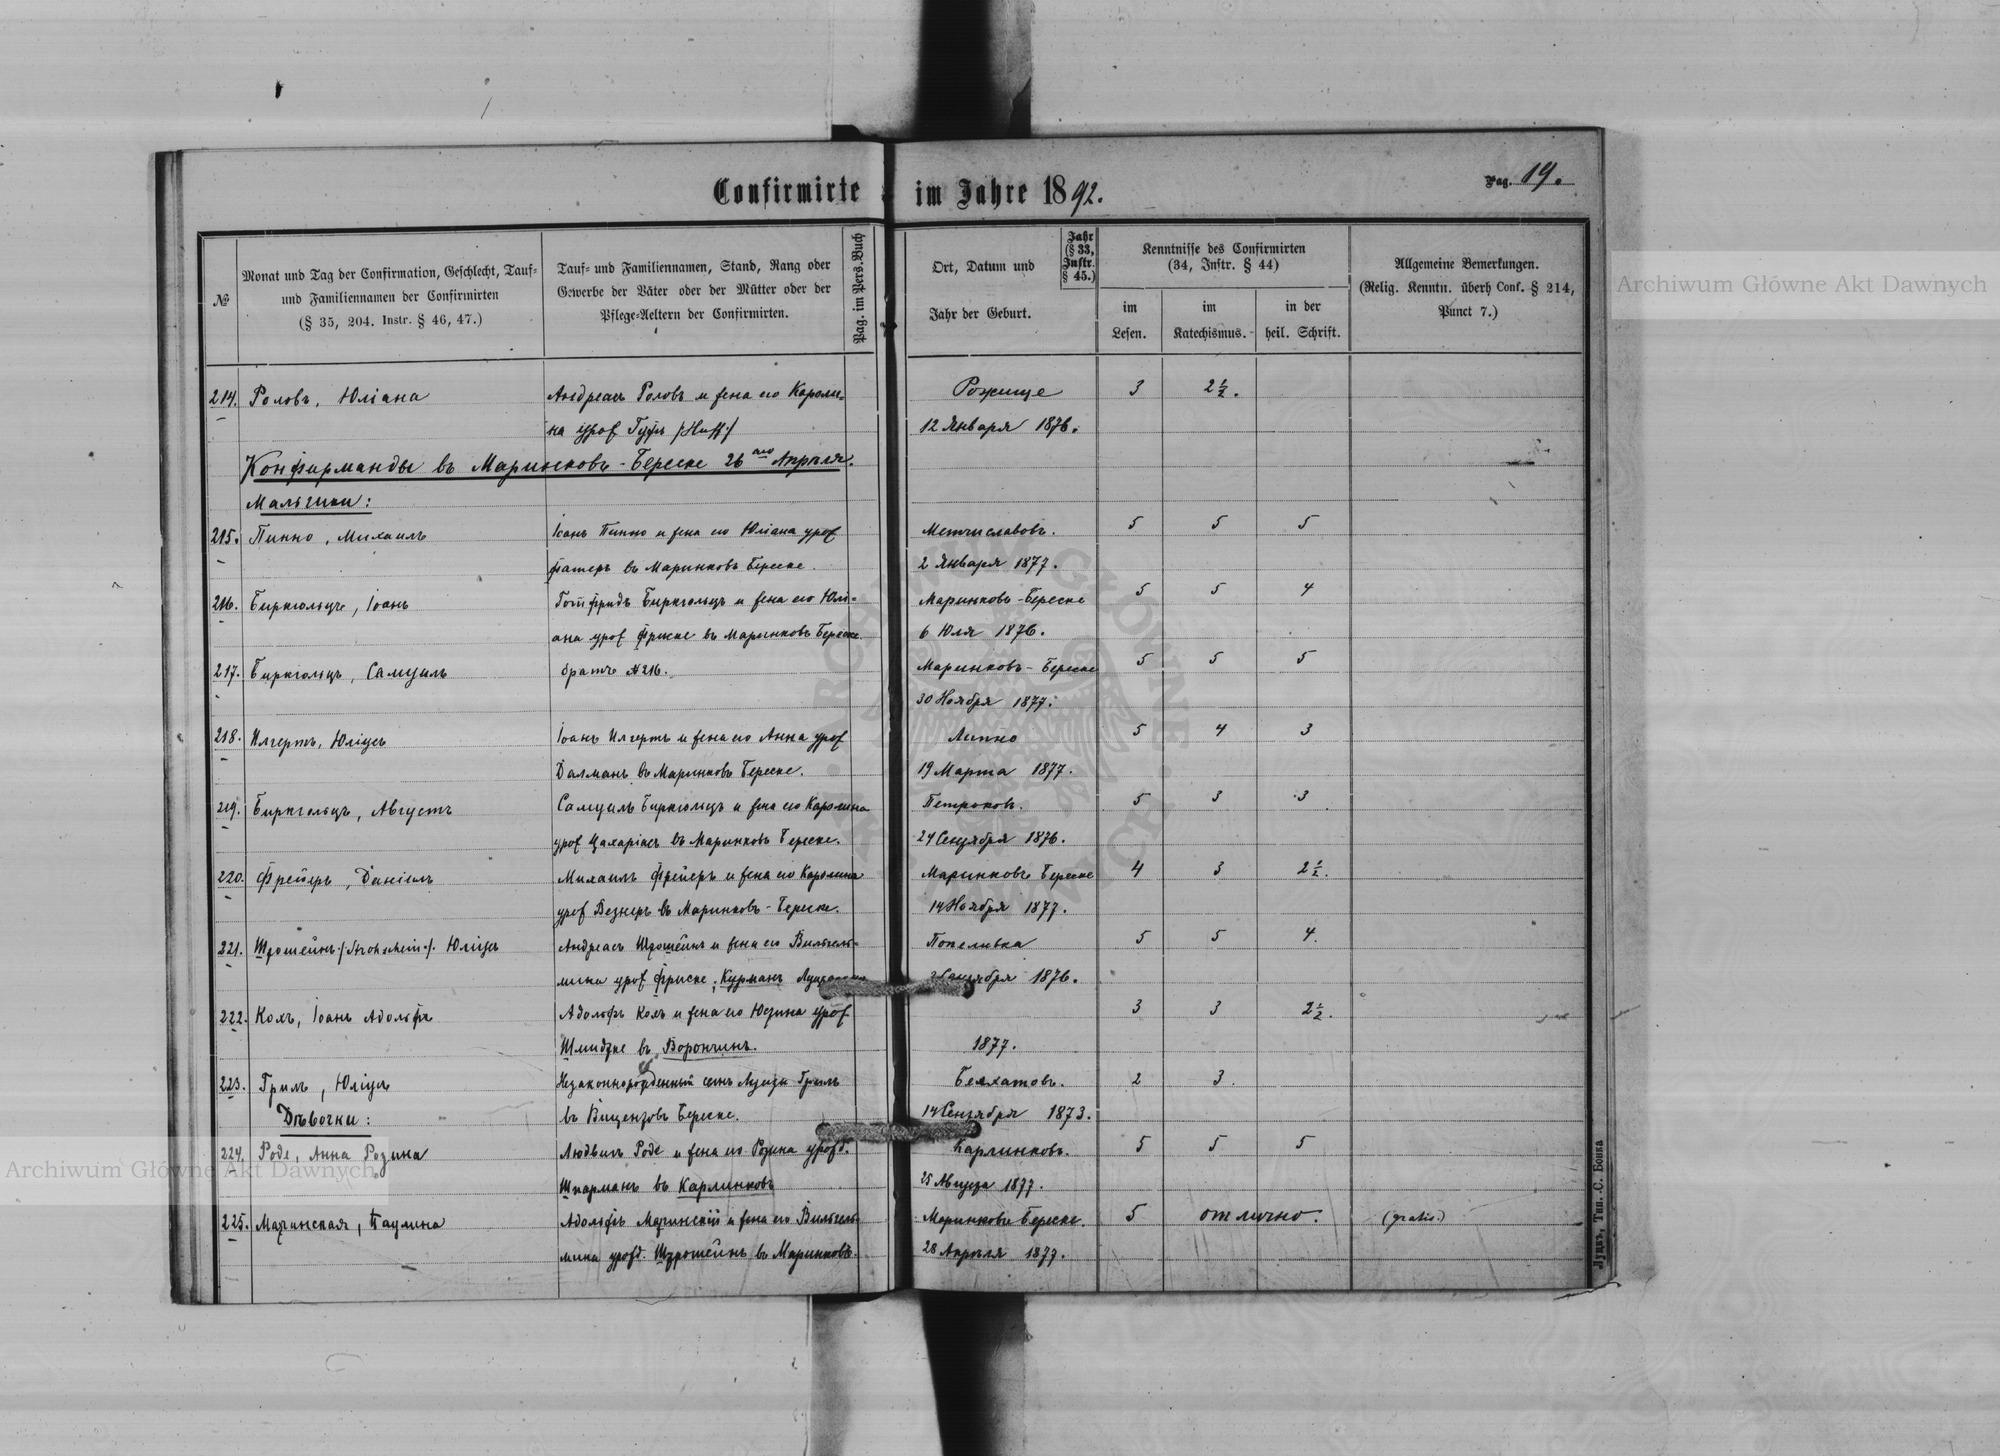 Confirmirte im Jahre 1892.
Pag. 19.
№
Monat und Tag der Confirmation, Geschlecht, Tauf-
und Familiennamen der Confirmirten
(§ 35, 204. Instr. § 46, 47.)
Tauf- und Familiennamen, Stand, Rang oder
Gewerbe der Väter oder der Mütter oder der
Pflege-Aeltern der Confirmirten.
Pag. im Pers.Buch
Ort, Datum und
Jahr der Geburt.
Jahr
(§ 33,
Instr.
§ 45.)
Kenntnisse des Confirmirten
(34, Instr. § 44)
im
Lesen.
im
Katechismus.
in der
heil. Schrift.
Allgemeine Bemerkungen.
(Relig. Kenntn. überh Conf. § 214,
Punct 7.)
214. Роловъ, Юліана Андреасъ Роловъ и жена его Кароли- Рожище 3 2½.
на урож Гуфъ /Huff/ 12 Января 1876.
Конфирманды въ Маринковъ-Береске 26 го Апрѣля.
Мальчики:
215. Пинно, Михаилъ Іоанъ Пинно и жена его Юліана урож Метчиславовъ. 5 5 5
фатеръ въ Маринковъ Береске. 2 Января 1877.
216. Биркгольцъ, Іоанъ Готфридъ Биркгольцъ и жена его Юлі- Маринковъ-Береске 5 5 4
ана урож Фриске въ Маринковъ Береске. 6 Юля 1876.
217. Биркгольцъ, Самуилъ братъ №216. Маринковъ-Береске 5 5 5
30 Ноября 1877.
218. Илгертъ, Юліусъ Іоанъ Илгертъ и жена его Анна урож Липно 5 4 3
Далманъ въ Маринковъ Береске. 19 Марта 1877.
219. Биркгольцъ, Августъ Самуилъ Биркгольцъ и жена его Каролина Петроковъ. 5 3 3
урож Цахаріасъ въ Маринковъ Береске. 24 Сентября 1876.
220. Фрейеръ, Даніилъ Михаилъ Фрейеръ и жена его Каролина Маринковъ Береске 4 3 2½.
урож Везнеръ въ Маринковъ-Береске. 14 Ноября 1877.
221. Штрошейнъ /Strohschein/. Юліусъ Андреасъ Штрошейнъ и жена его Вильгель- Попеливка 5 5 4.
мина урож Фриске, Курманъ 1876.
222. Кохъ, Іоанъ Адольфъ Адольфъ Кохъ и жена его Юстина урож 3 3 2½.
Шмидтке въ Ворончинъ. 1877.
223. Гриль, Юліусъ Незаконнорожденный сынъ Луизы Гриль Белхатовъ. 2 3.
Дѣвочки: въ Виценговъ Береске. 14 Сентября 1873.
224. Роде, Анна Розина Людвигъ Роде и жена его Розина урожд. Карлинковъ. 5 5 5
Шпарманъ въ Карлинковъ 25 Августа 1877.
225. Мачинская, Паулина Адольфъ Мачинскій и жена его Вильгель- Маринковъ Береске. 5 отлично. (gratis.)
мина урожд. Штрошейнъ въ Маринковъ. 28 Апрѣля 1877.
Луцкъ, Тип. С. Бонка
Archiwum Główne Akt Dawnych
Archiwum Główne Akt Dawnych